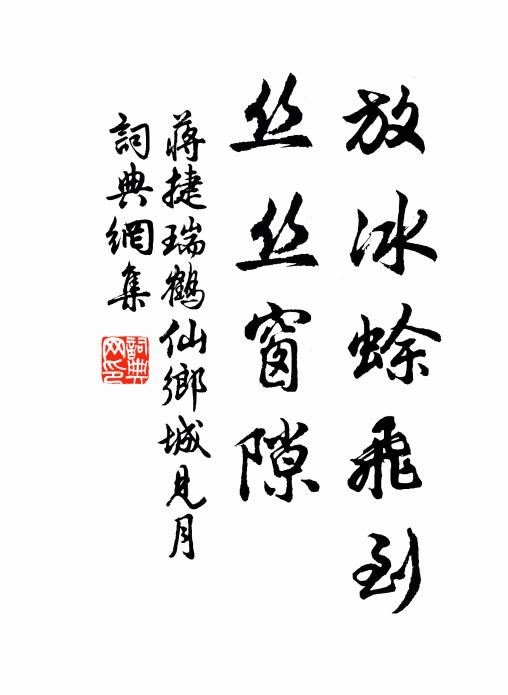 放冰蜍飛到
丝丝窗隙
蔣捷瑞鶴仙鄉城見月
詞典網集
詞典網印